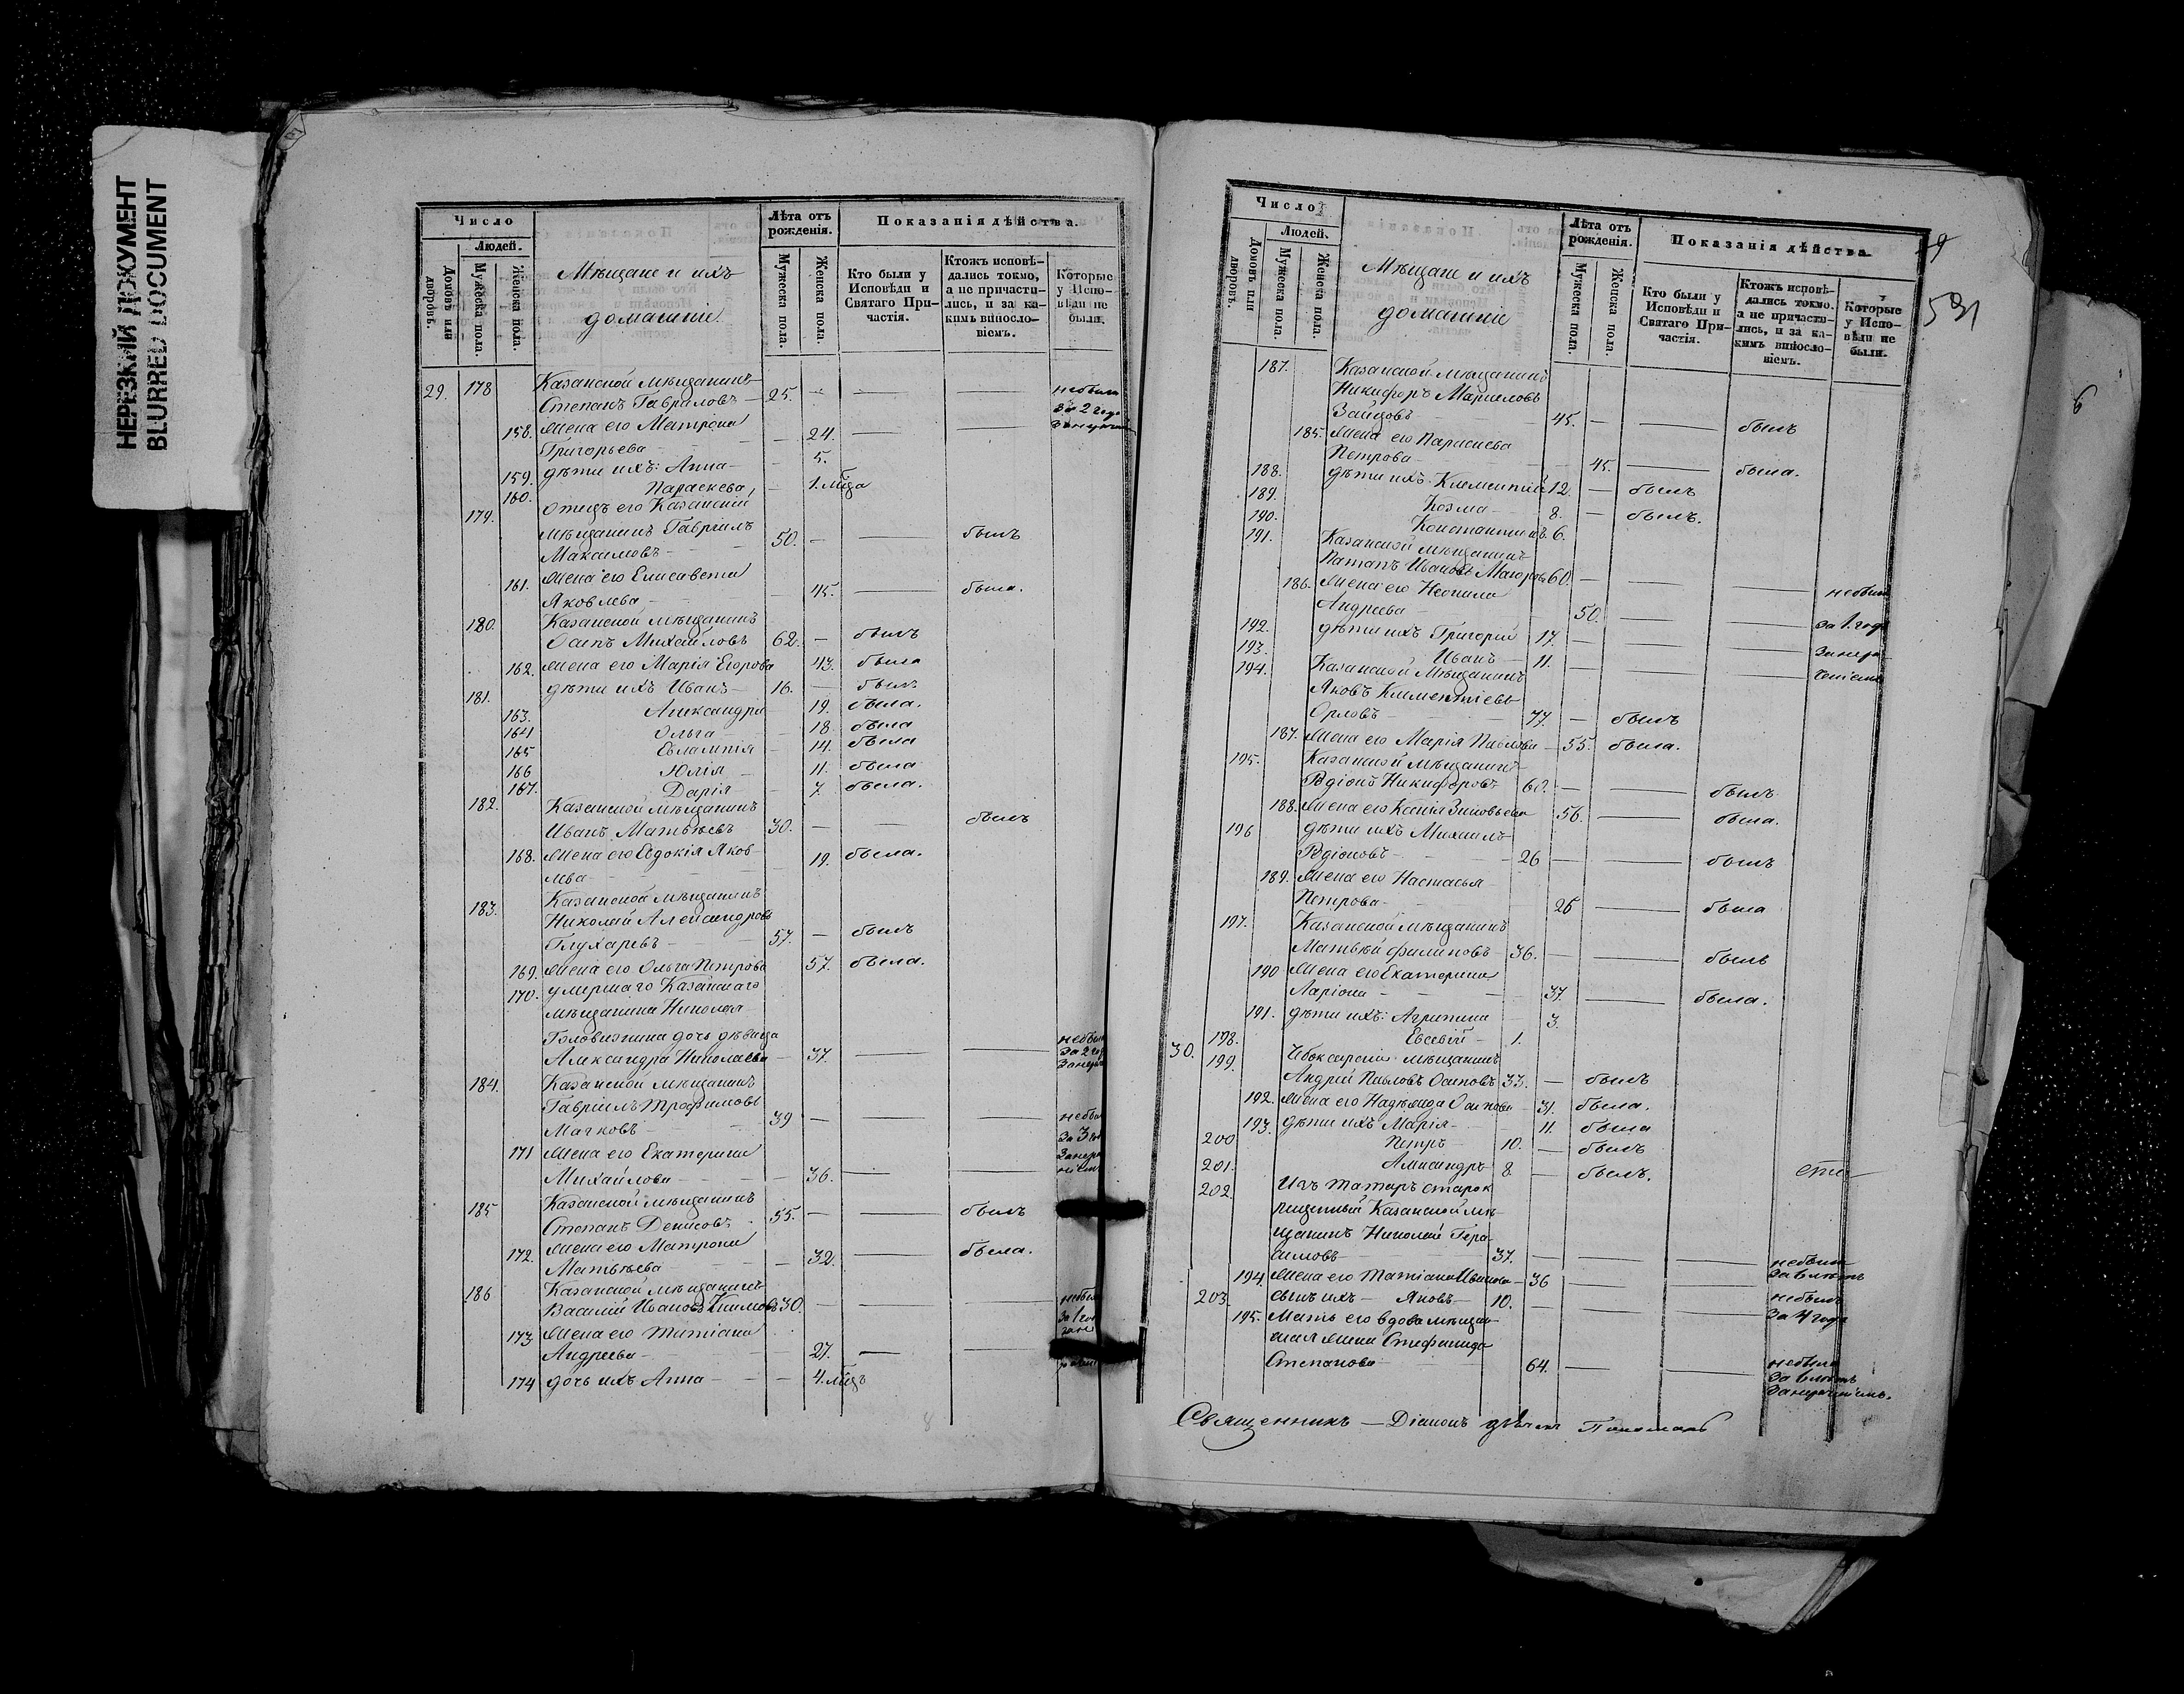 НЕРЕЗКИЙ ДОКУМЕНТ
BLURRED DOCUMENT
Число
Людей.
Домовъ или дворовъ.
Мужеска пола.
Женска пола.
Мѣщане и ихъ
домашніе.
Лѣта отъ рожденія.
Мужеска пола.
Женска пола.
Показанія дѣйства.
Кто были у Исповѣди и Святаго Причастія.
Ктожъ исповѣдались токмо, а не причастились, и за какимъ винословіемъ.
Которые у Исповѣди не были.
29. 178 Казанской мѣщанинъ
Степанъ Гавриловъ — 25. — — — небылъ
за 2 года
158. Жена его Матрона
Григорьева — — 24. — —
159. дѣти ихъ: Анна — — 5.
160. Параскева — 1. мѣсяца
179. Отецъ его Казанскій
мѣщанинъ Гавріилъ
Максимовъ — 50. — — былъ
161. Жена его Елисавета
Яковлева — — 45. — была.
180. Казанской мѣщанинъ
Осипъ Михайловъ 62. — былъ
162. Жена его Марія Егорова 43. была
181. дѣти ихъ Иванъ — 16. — былъ
163. Александра 19. была.
164 Ольга — 18. была
165 Евлампія — 14. была
166 Юлія — 11. была
167. Дарія — 7. была.
182. Казанской мѣщанинъ
Иванъ Матвѣевъ 30. — — былъ
168. Жена его Евдокія Яков-
лева — 19. была.
183. Казанской мѣщанинъ
Николай Александровъ
Глухаревъ — 57. — былъ
169. Жена его Ольга Петрова 57. была.
170. умершаго Казанскаго
мѣщанина Николая
Головизнина дочь дѣвица
Александра Николаева — 37. — — небыла
за 2 го
184. Казанской мѣщанинъ
Гавріилъ Трофимовъ
Мачковъ — 39 — — — небылъ
за 3 го
171 Жена его Екатерина
Михайлова — 36. — —
185 Казанской мѣщанинъ
Степанъ Денисовъ 55. — — былъ
172. Жена его Матрона
Матвѣева — — 32. — была.
186 Казанской мѣщанинъ
Василій Ивановъ Климовъ 30. — — — небылъ
за 1 го
173 Жена его Татіана
Андреева — — 27. — —
174 дочь ихъ Анна — — 4. мѣсяцъ
Число
Людей.
Домовъ или дворовъ.
Мужеска пола.
Женска пола.
Мѣщане и ихъ
домашніе
Лѣта отъ рожденія.
Мужеска пола.
Женска пола.
Показанія дѣйства
Кто были у Исповѣди и Святаго Причастія.
Ктожъ исповѣдались токмо, а не причастились, и за какимъ винословіемъ.
Которые у Исповѣди не были.
531
6
187. Казанской мѣщанинъ
Никифоръ Маркеловъ
Зайцовъ — 45. — — былъ
185. Жена его Параскева
Петрова — — 45. — была.
188. дѣти ихъ: Климентій 12. — былъ
189. Козма — 8. — былъ.
190. Константинъ 6.
191. Казанской мѣщанинъ
Патапъ Ивановъ 60. — — — небылъ
186. Жена его Неонила
Андреева — 50. — — за 1. годъ
192. дѣти ихъ Григорій 17. — — —
193. Иванъ — 11. — — —
194. Казанской Мѣщанинъ
Яковъ Климентіевъ
Орловъ — — 77. — былъ
187. Жена его Марія Павлова — 55. была.
195. Казанской мѣщанинъ
Родіонъ Никифоровъ 60. — — былъ
188. Жена его Ксенія Зиновьева 56. — была.
196 дѣти ихъ Михаилъ
Родіоновъ — — 26 — — былъ
189. Жена его Настасья
Петрова — 26 — была
197. Казанской мѣщанинъ
Матвѣй Филиповъ — 36. — — былъ
190 Жена его Екатерина
Ларіона — — 37. — была.
191. дѣти ихъ: Агрипина — 3.
198. Евсевій — 1.
30. 199. Чебоксарской мѣщанинъ
Андрей Павловъ Осиповъ 33. — былъ
192. Жена его Надежда Осипова — 31. была.
193. дѣти ихъ Марія — 11. была
200 Петръ — 10. — былъ
201. Александръ 8. — былъ.
202. Изъ татаръ старок-
рещенный Казанской мѣ-
щанинъ Николай Гера-
симовъ — 37. — — — небылъ
за 6 лѣтъ
194. Жена его Татіана Иванова — 36 — —
203. сынъ ихъ — Яковъ — 10. — — — небылъ
за 4 года
195. Мать его вдова мѣщан-
ская жена Стефанида
Степанова — 64. — — небыла
за 6 лѣтъ
Священникъ — Діаконъ дьячекъ Пономарь